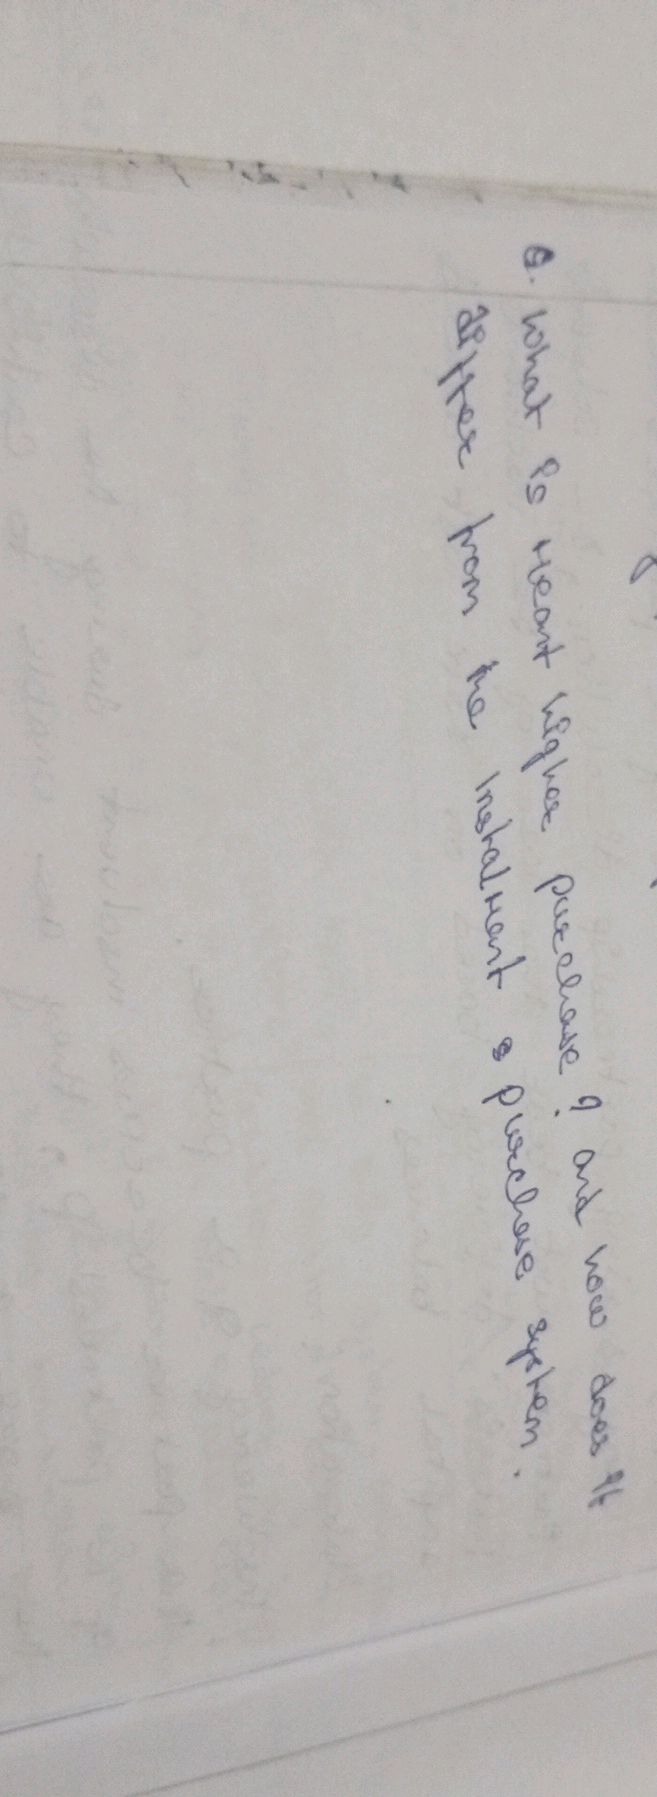 Q. What is meant higher purchase ? and how does it
differ from the instalment s purchase system.